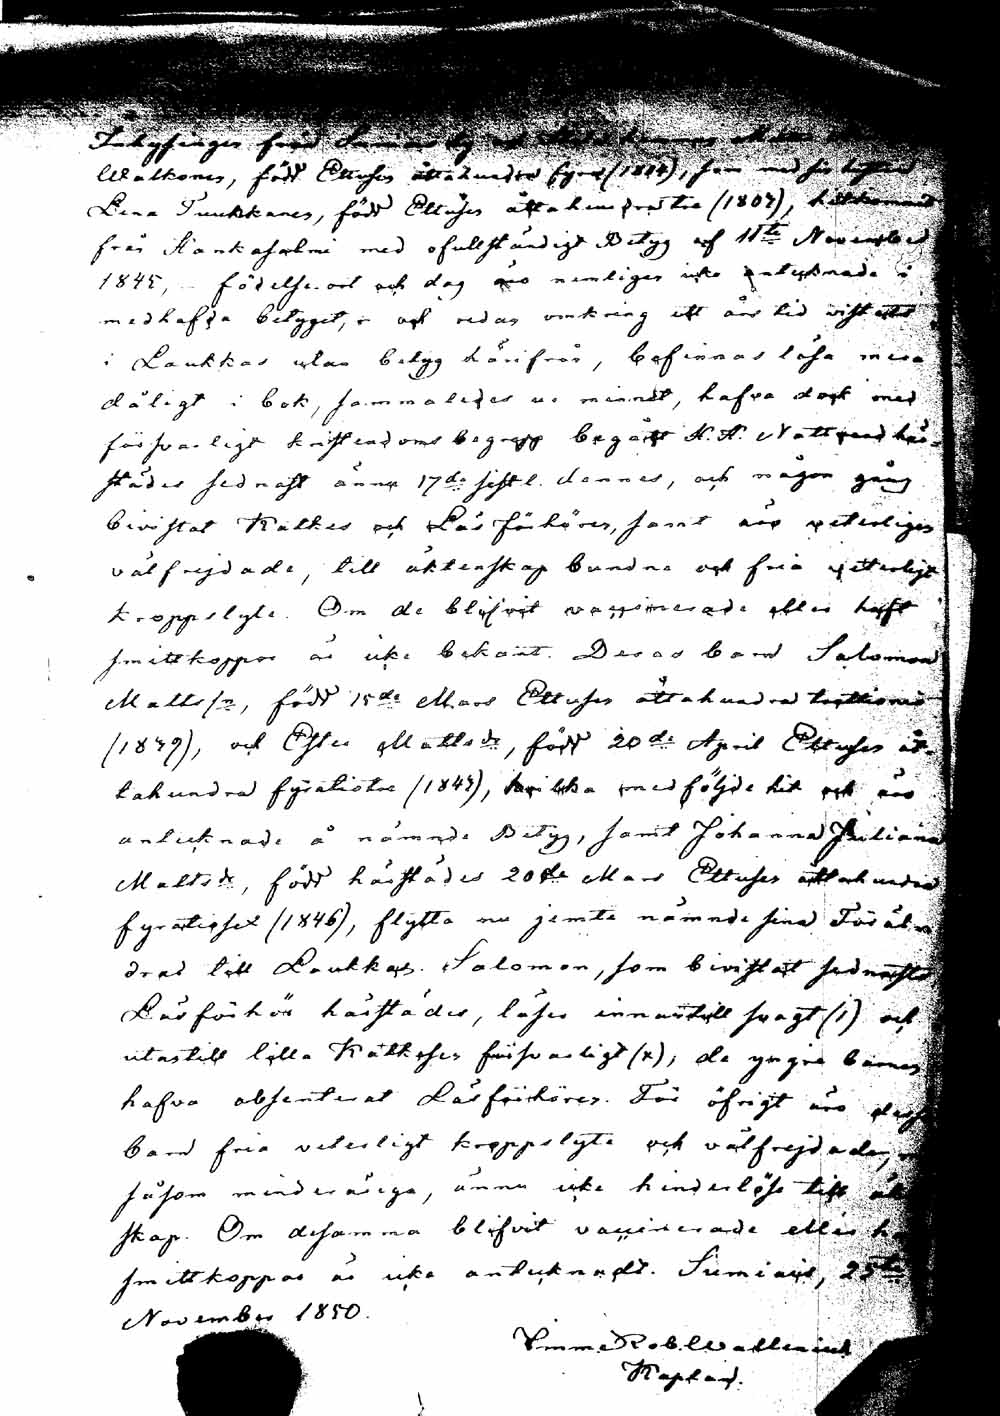 Inhysingen från Sumiais by
Walkonen, född Ettusen åttahundra fyra (1804), som med sin hustru
Lena Tuukkanen, född Ettusen åttahundratre (1803), hitkommit
från Kankasalmi med ofullständigt Betyg af 11te November
1845, – födelse-ort och dag äro nemligen icke antecknade i
medhafda betyget, – och redan omkring ett års tid vistats
i Laukkas utan betyg härifrån, befinnas läsa mera
dåligt i bok, sammaledes ur minnet, hafva dock med
försvarligt kristendoms begrepp begått H. H. Nattvard här-
städes sednast änna 17de sistl. dennes, och någon gång
bivistat Kätkes och Läsförhören, samt äro veterligen
välfrejdade, till äktenskap bundne och fria veterligt
kroppslyte. Om de blifvit vaccinerade eller haft
smittkoppor är icke bekant. Deras barn Salomon
Matts sn, född 15de Mars Ettusen åttahundra trettionio
(1839), och Ester Matts dr, född 20de April Ettusen åt-
tahundra fyratiotre (1843), hvilka medföljde hit och äro
antecknade å nämnde Betyg, samt Johanna Juliana
Matts dr, född härstädes 20de Mars Ettusen åttahundra
fyratiosex (1846), flytta nu jemte nämnde sina Föräl-
drar till Laukkas. Salomon, som bivistat sednaste
Läsförhör härstädes, läser innantill svagt (1) och
utantill lilla Katkesen försvarligt (x); de yngre barnen
hafva absenterat Läsförhören. För öfrigt äro dessa
barn fria veterligt kroppslyte och välfrejdade,
såsom minderåriga, ännu icke hinderlöse till
skap. Om desamma blifvit vaccinerade eller
smittkoppor är icke antecknadt. Sumiais, 25te
November 1850.
Rob. Wallenius
Kaplan.